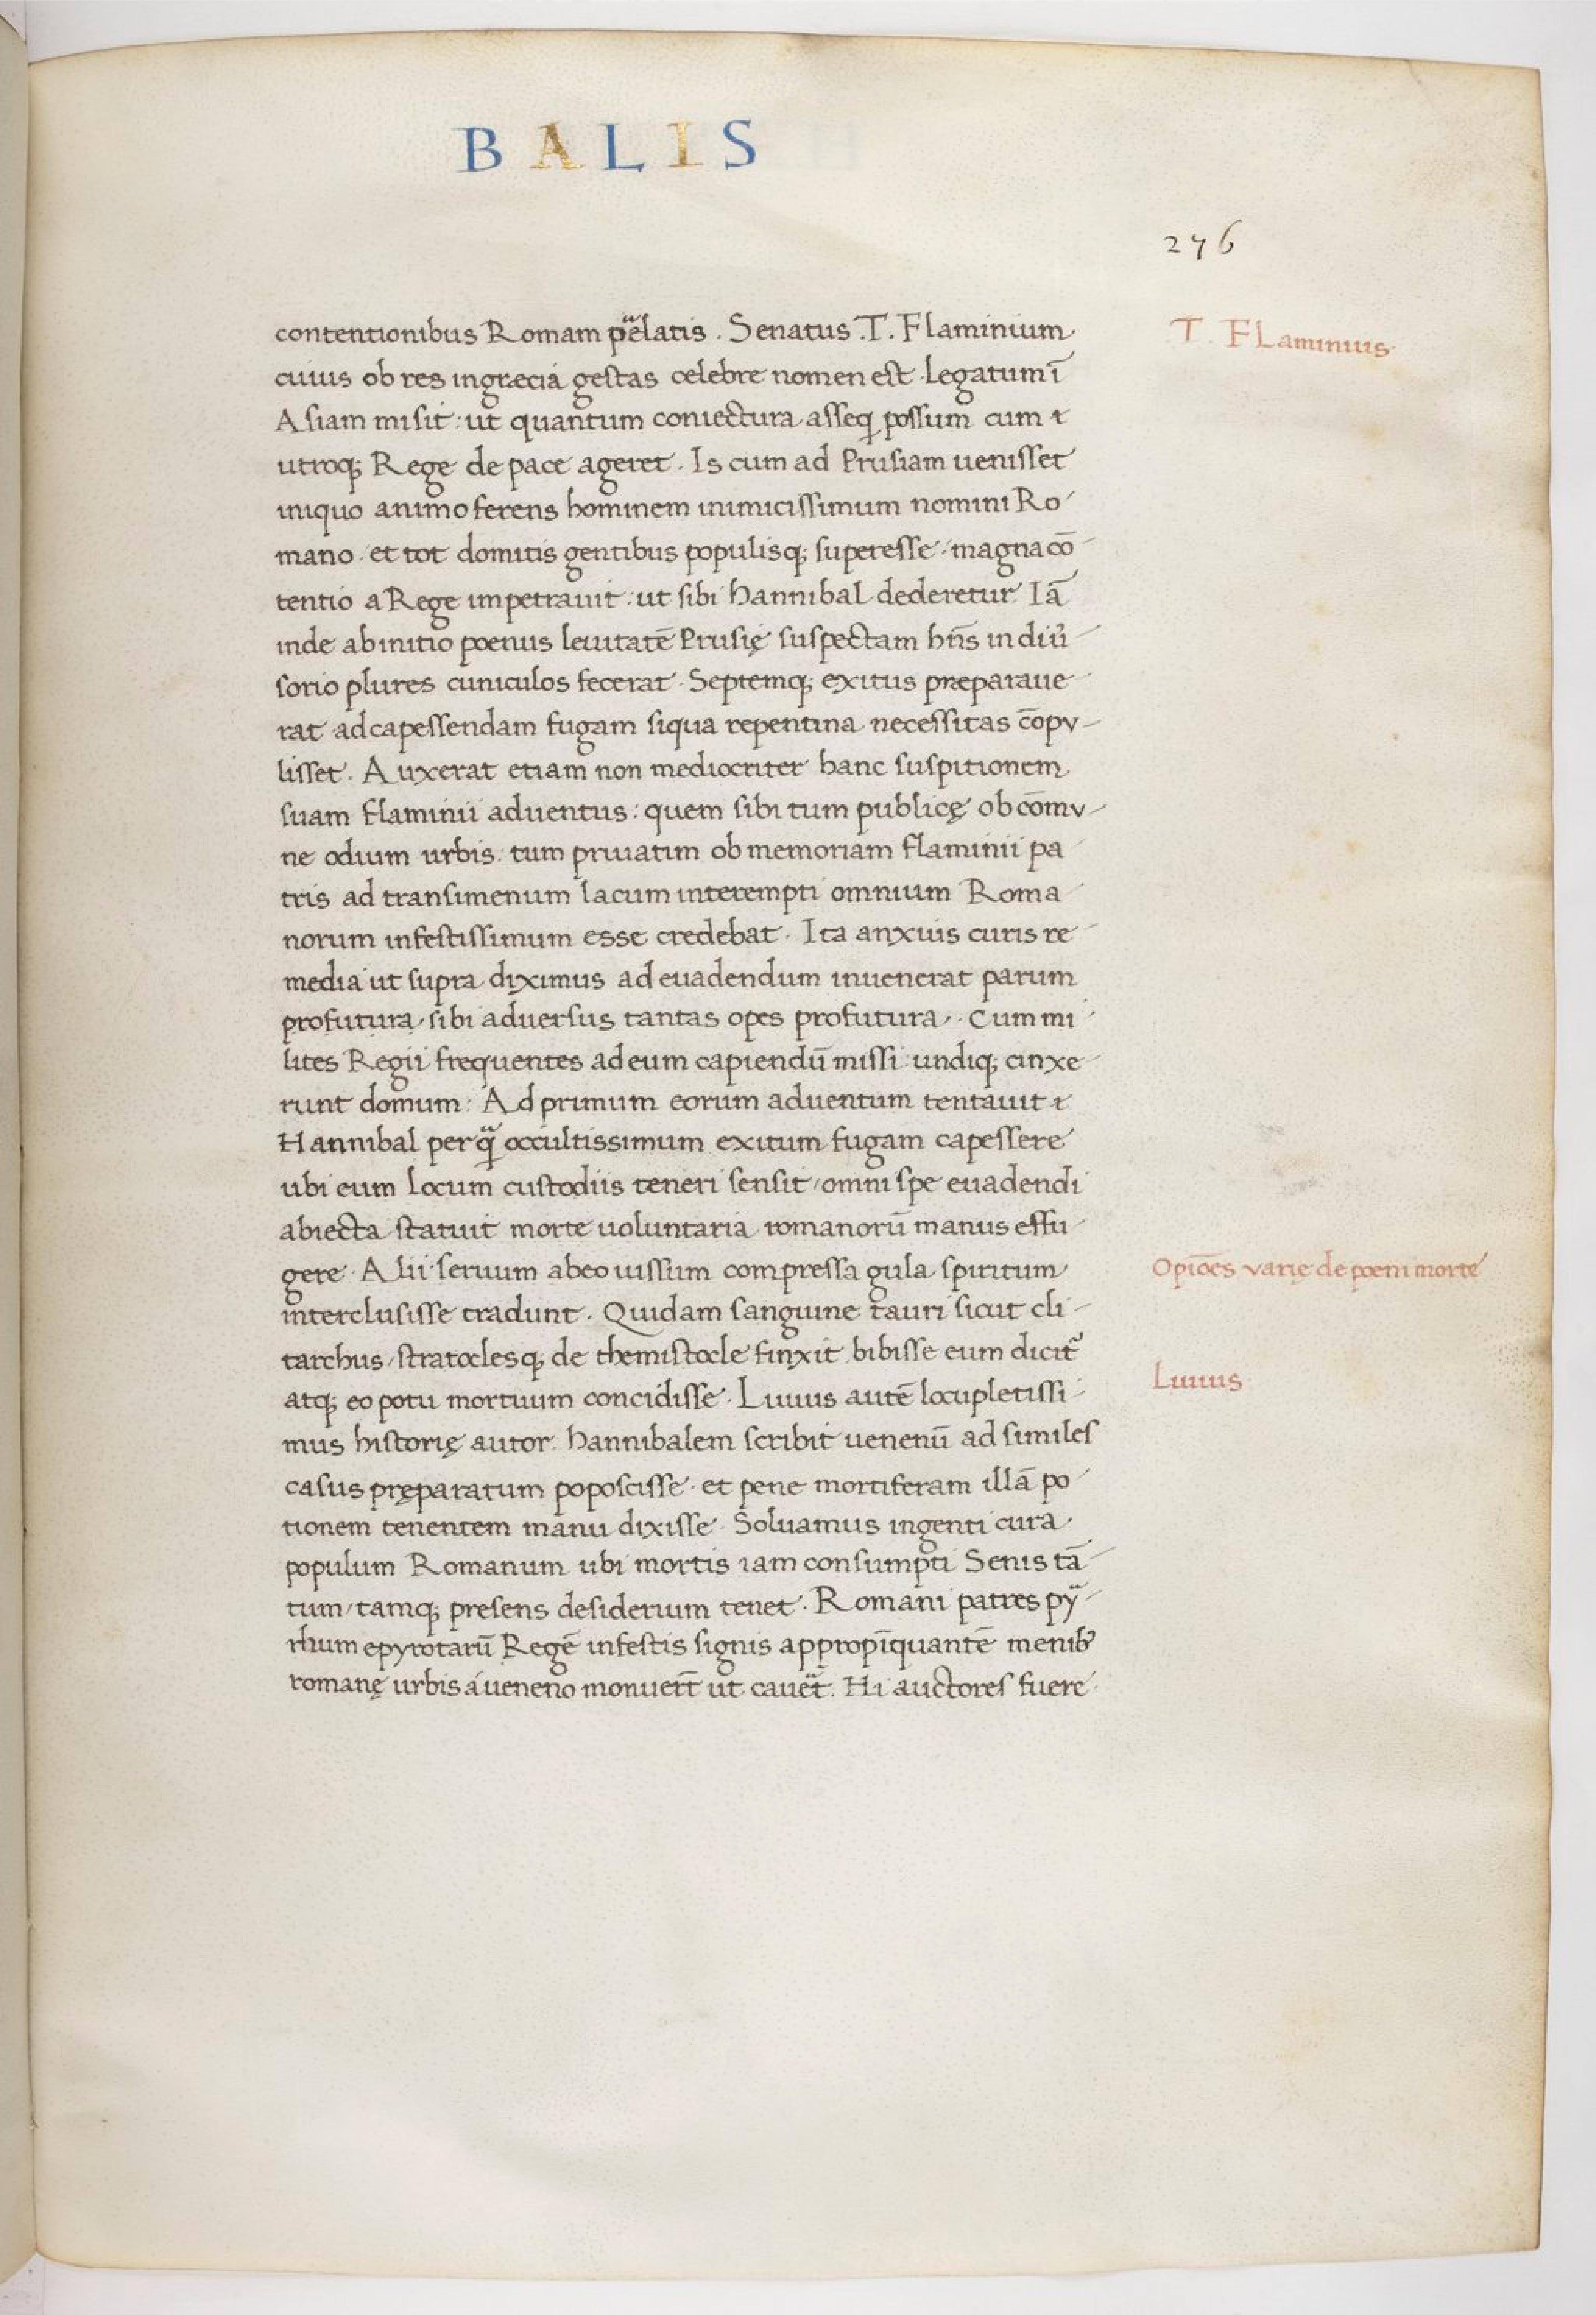 BALIS
276
contentionibus Romam p̄elatis. Senatus .T. Flaminium
T. FLaminius.
cuius ob res in græcia gestas celebre nomen est legatum ī
Asiam misit: ut quantum coniectura asseq̨ possum cum &
utroq; Rege de pace ageret. Is cum ad Prusiam uenisset
iniquo animo ferens hominem inimicissimum nomini Ro
mano et tot domitis gentibus populisq; superesse: magna cō
tentio a Rege impetrauit: ut sibi hannibal dederetur. Iā
inde ab initio poenus leuitatē Prusię suspectam hn̄s in diu͛
sorio plures cuniculos fecerat. Septemq; exitus præparaue
rat ad capessendam fugam siqua repentina necessitas cōpv
lisset. Auxerat etiam non mediocriter hanc suspitionem
suam flaminii aduentus: quem sibi tum publicę ob cōmv
ne odium urbis. tum priuatim ob memoriam flaminii pa
tris ad transimenum lacum interempti omnium Roma
norum infestissimum esse credebat. Ita anxius curis re
media ut supra diximus ad euadendum inuenerat parum
profutura sibi aduersus tantas opes profutura. Cum mi
lites Regii frequentes ad eum capiendū missi: undiq; cinxe
runt domum: Ad primum eorum aduentum tentauit &
Hannibal per qͣ occultissimum exitum fugam capessere
ubi eum locum custodiis teneri sensit, omni spe euadendi
abiecta statuit morte uoluntaria romanorū manus effu
gere. Alii seruum ab eo uissum compressa gula spiritum
Opiōes varię de poeni morte
interclusisse tradunt. Quidam sanguine tauri sicut cli
tarchus, stratoclesq; de themistocle finxit bibisse eum dicit᷑
atq; eo potu mortuum concidisse. Liuius autē locupletissi
Liuius
mus historię autor. hannibalem scribit uenenū ad similes
casus pręparatum poposcisse. et pene mortiferam illā po
tionem tenentem manu dixisse. Soluamus ingenti cura
populum Romanum ubi mortis iam consumpti Senis tā
tum, tamq; presens desiderium tenet. Romani patres pyͣ
rhum epyrotarū Regē infestis signis appropīquantē menib᾿
romanę urbis á ueneno monuer̄t ut caueͣt. Hi auctores fuere